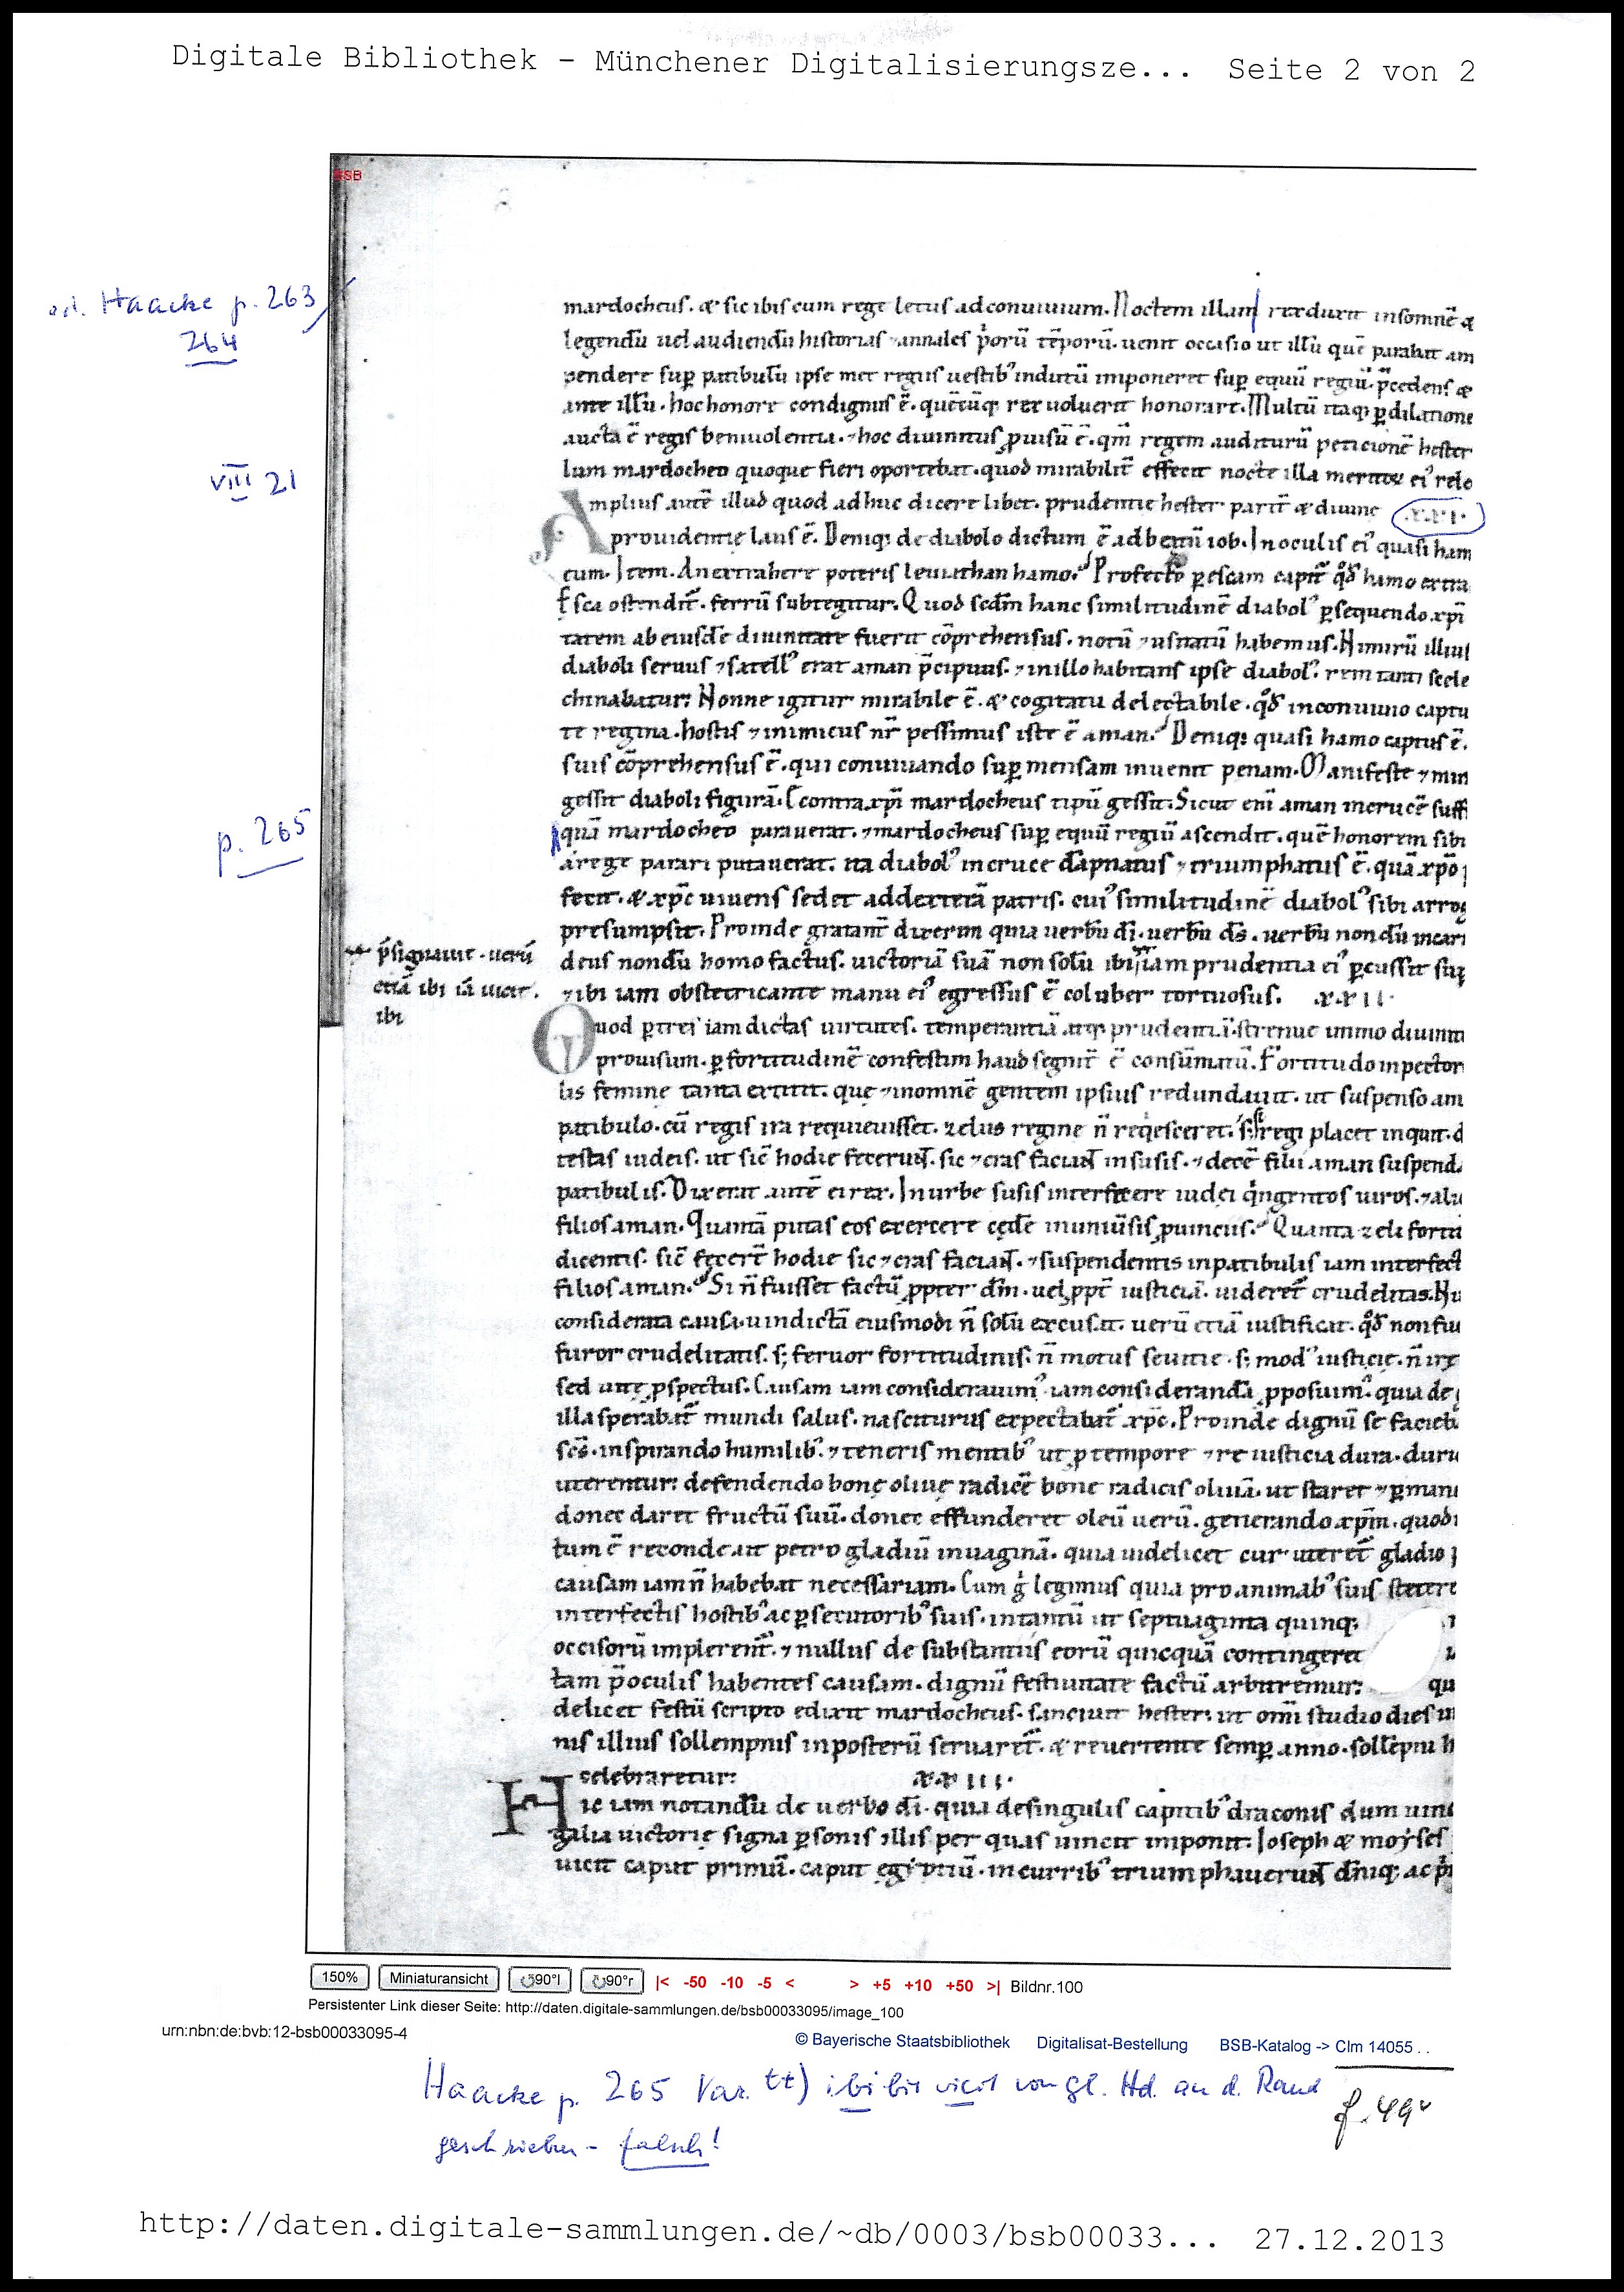 Digitale Bibliothek - Münchener Digitalisierungsze... Seite 2 von 2
BSB
ed. Haacke p. 263
264
VIII 21
p. 265
mardocheus. & sic ibis cum rege letus ad conuiuium. Noctem illam rex duxit insomnē &
legendū uel audiendū historias ⁊ annales p̓orū tēporū. uenit occasio ut illū quē parabat am
pendere sup̱ patibulū ipse met regiis uestibꝰ indutū imponeret sup̱ equū regiū. p̄cedens &
ante illū. hoc honore condignus ē. quēcūq; rex uoluerit honorare. Multū itaq; p̱ dilatione
aucta ē regis beniuolentia. ⁊ hoc diuinitus ꝓuisū ē. qm̄ regem auditurū peticionē hester
lum mardocheo quoque fieri oportebat. quod mirabilit̄ effecit nocte illa
Amplius autē illud quod adhuc dicere libet. prudentie hester parit̄ & diuine .xxi.
prouidentie laus ē. Deniq; de diabolo dictum ē ad beatū iob. In oculis eiꝰ quasi ham
cum. Item. An extrahere poteris leuiathan hamo. Profecto p̱ escam capit̄ qd̄ hamo extra
Esca ostendit̄. ferrū subtegitur. Quod scdm̄ hanc similitudinē diabolꝰ p̱sequendo xp̄i
tatem ab eiusdē diuinitate fuerit cōprehensus. notū ⁊ usitatū habemus. Nimirū illius
diaboli seruus ⁊ satellꝰ erat aman p̄cipuus. ⁊ in illo habitans ipse diabolꝰ. rem tanti scele
chinabatur: Nonne igitur mirabile ē. & cogitatu delectabile. qd̄ in conuiuio captu
te regina. hostis ⁊ inimicus nr̄ pessimus iste ē aman. Deniq; quasi hamo captus ē.
suis cōprehensus ē. qui conuiuando sup̱ mensam inuenit penam. Manifeste ⁊ min
gessit diaboli figurā. E contra xp̄i mardocheus tipū gessit. Sicut eni aman in crucē suff
quā mardocheo parauerat. ⁊ mardocheus sup̱ equū regiū ascendit. quē honorem sibi
a rege parari putauerat. ita diabolꝰ in cruce dāpnatus ⁊ triumphatus ē. quā xp̄o
fecit. & xp̄c uiuens sedet ad dexterā patris. cuiꝰ similitudinē diabolꝰ sibi arrog
presumpsit. Proinde gratant̄ dixerim quia uerbū dī. uerbū ds̄. uerbū nondū incar
p̄signauit. uerū
etiā ibi iā uicit.
ibi
deus nondū homo factus. uictoriā suā non solū ibi iam prudentia eiꝰ p̱cussit sup̱
⁊ ibi iam obstetricante manu eiꝰ egressus ē coluber tortuosus. .xxii.
Quod p̱ tres iam dictas uirtutes. temperantiā atq; prudentiā strenue immo diuini
prouisum. p̱ fortitudinē confestim haud segnit̄ ē consūmatū. Fortitudo in pector
lis femine tanta extitit. que ⁊ in omnē gentem ipsius redundauit. ut suspenso am
patibulo. cū regis ira requieuisset. zelus regine n̄ reqesceret. si regi placet inquit. d
testas iudeis. ut sic̄ hodie fecerunt. sic ⁊ cras faciant in susis. ⁊ decē filii aman suspend
patibulis. Dixerat autē ei rex. In urbe susis interfecere iudei qingentos uiros. ⁊ alı
filios aman. Quantā putas eos exercere cedē in uniuersis ꝓuinciis. Quanta zeli forti
dicentis. sic̄ fecerē hodie sic ⁊ cras faciant. ⁊ suspendentis in patibulis iam interfect
filios aman. Si n̄ fuisset factū ꝓpter dm̄. uel ꝓpt̄ iusticiā. uideret̄ crudelitas. Nu
considerata causa. uindictā eiusmodi n̄ solū excusat. uerū etiā iustificat. qd̄ non fiu
furor crudelitatis. s; feruor fortitudinis. n̄ motus seuitie. s; modꝰ iusticie. n̄
Causam iam considerauimꝰ. iam considerandā ꝓposuimꝰ. quia de
illa sperabat̄ mundi salus. nasciturus expectabat̄ xp̄c. Proinde dignū se facieb
scs̄. inspirando humilibꝰ. ⁊ teneris mentibꝰ ut ꝓ tempore ⁊ re iusticia dura. duru
uterentur: defendendo bonę oliuę radicē bone radicis oliuā. ut staret ⁊ p̱mane
donec daret fructū suū. donec effunderet oleū uerū. generando xp̄m. quod
tum ē reconde ait petro gladiū in uaginā. quia uidelicet cur uteret̄ gladio
causam iam n̄ habebat necessariam. Cum g̓ legimus quia pro animabꝰ suis stetere
interfectis hostibꝰ ac p̱secutoribꝰ suis. in tantū ut septuaginta quinq;
occisorū implerent̄. ⁊ nullus de substantiis eorū quicquā contingeret
tam p̄ oculis habentes causam. dignū festiuitate factū arbitremur: qu
delicet festū scripto edixit mardocheus. sanciuit hester: ut omi studio dies
nis illius sollempnis in posterū seruaret̄. & reuertente semp̱ anno. sollēpni h
celebraretur: xxiii.
Hic iam notandū de uerbo dī. quia de singulis capitibꝰ draconis dum uinc
galia uictorie signa p̱sonis illis per quas uincit imponit: Ioseph & moyses
uicit caput primū. caput egiptiū. in curribꝰ triumphauerunt
150% Miniaturansicht 90°l 90°r |< -50 -10 -5 < > +5 +10 +50 >| Bildnr.100
Persistenter Link dieser Seite: http://daten.digitale-sammlungen.de/bsb00033095/image_100
urn:nbn:de:bvb:12-bsb00033095-4
© Bayerische Staatsbibliothek Digitalisat-Bestellung BSB-Katalog -> Clm 14055 . .
Haacke p. 265 Var. tt) ibi bis vicit von gl. Hd. an d. Rand
geschrieben - falsch!
f. 49v
http://daten.digitale-sammlungen.de/~db/0003/bsb00033... 27.12.2013